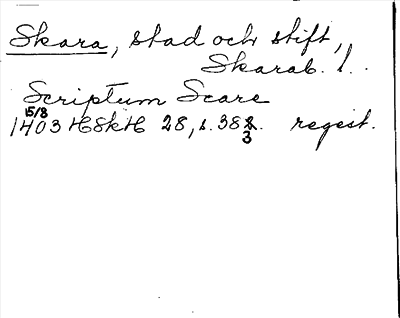 Skara, stad och stift,
Skarab. l.
Scriptum Scare
15/8
1403 HSkH 28, s. 383. regest.